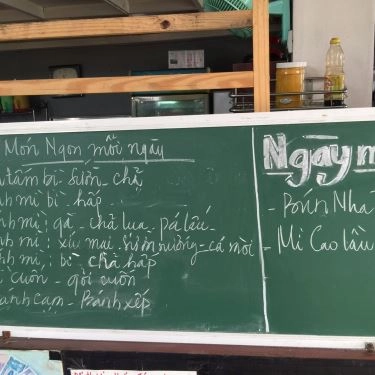 Món Ngon mỗi ngày
tấm bì - sườn - chả
mì bì hấp
mì : gà - chả lụa - pá lấu -
mì : xíu mại - nem nướng - cá mòi
: bì chả hấp
cuốn - gỏi cuốn
cam - Bánh xếp
Ngày m
- Bún
- Mì Cao lầu